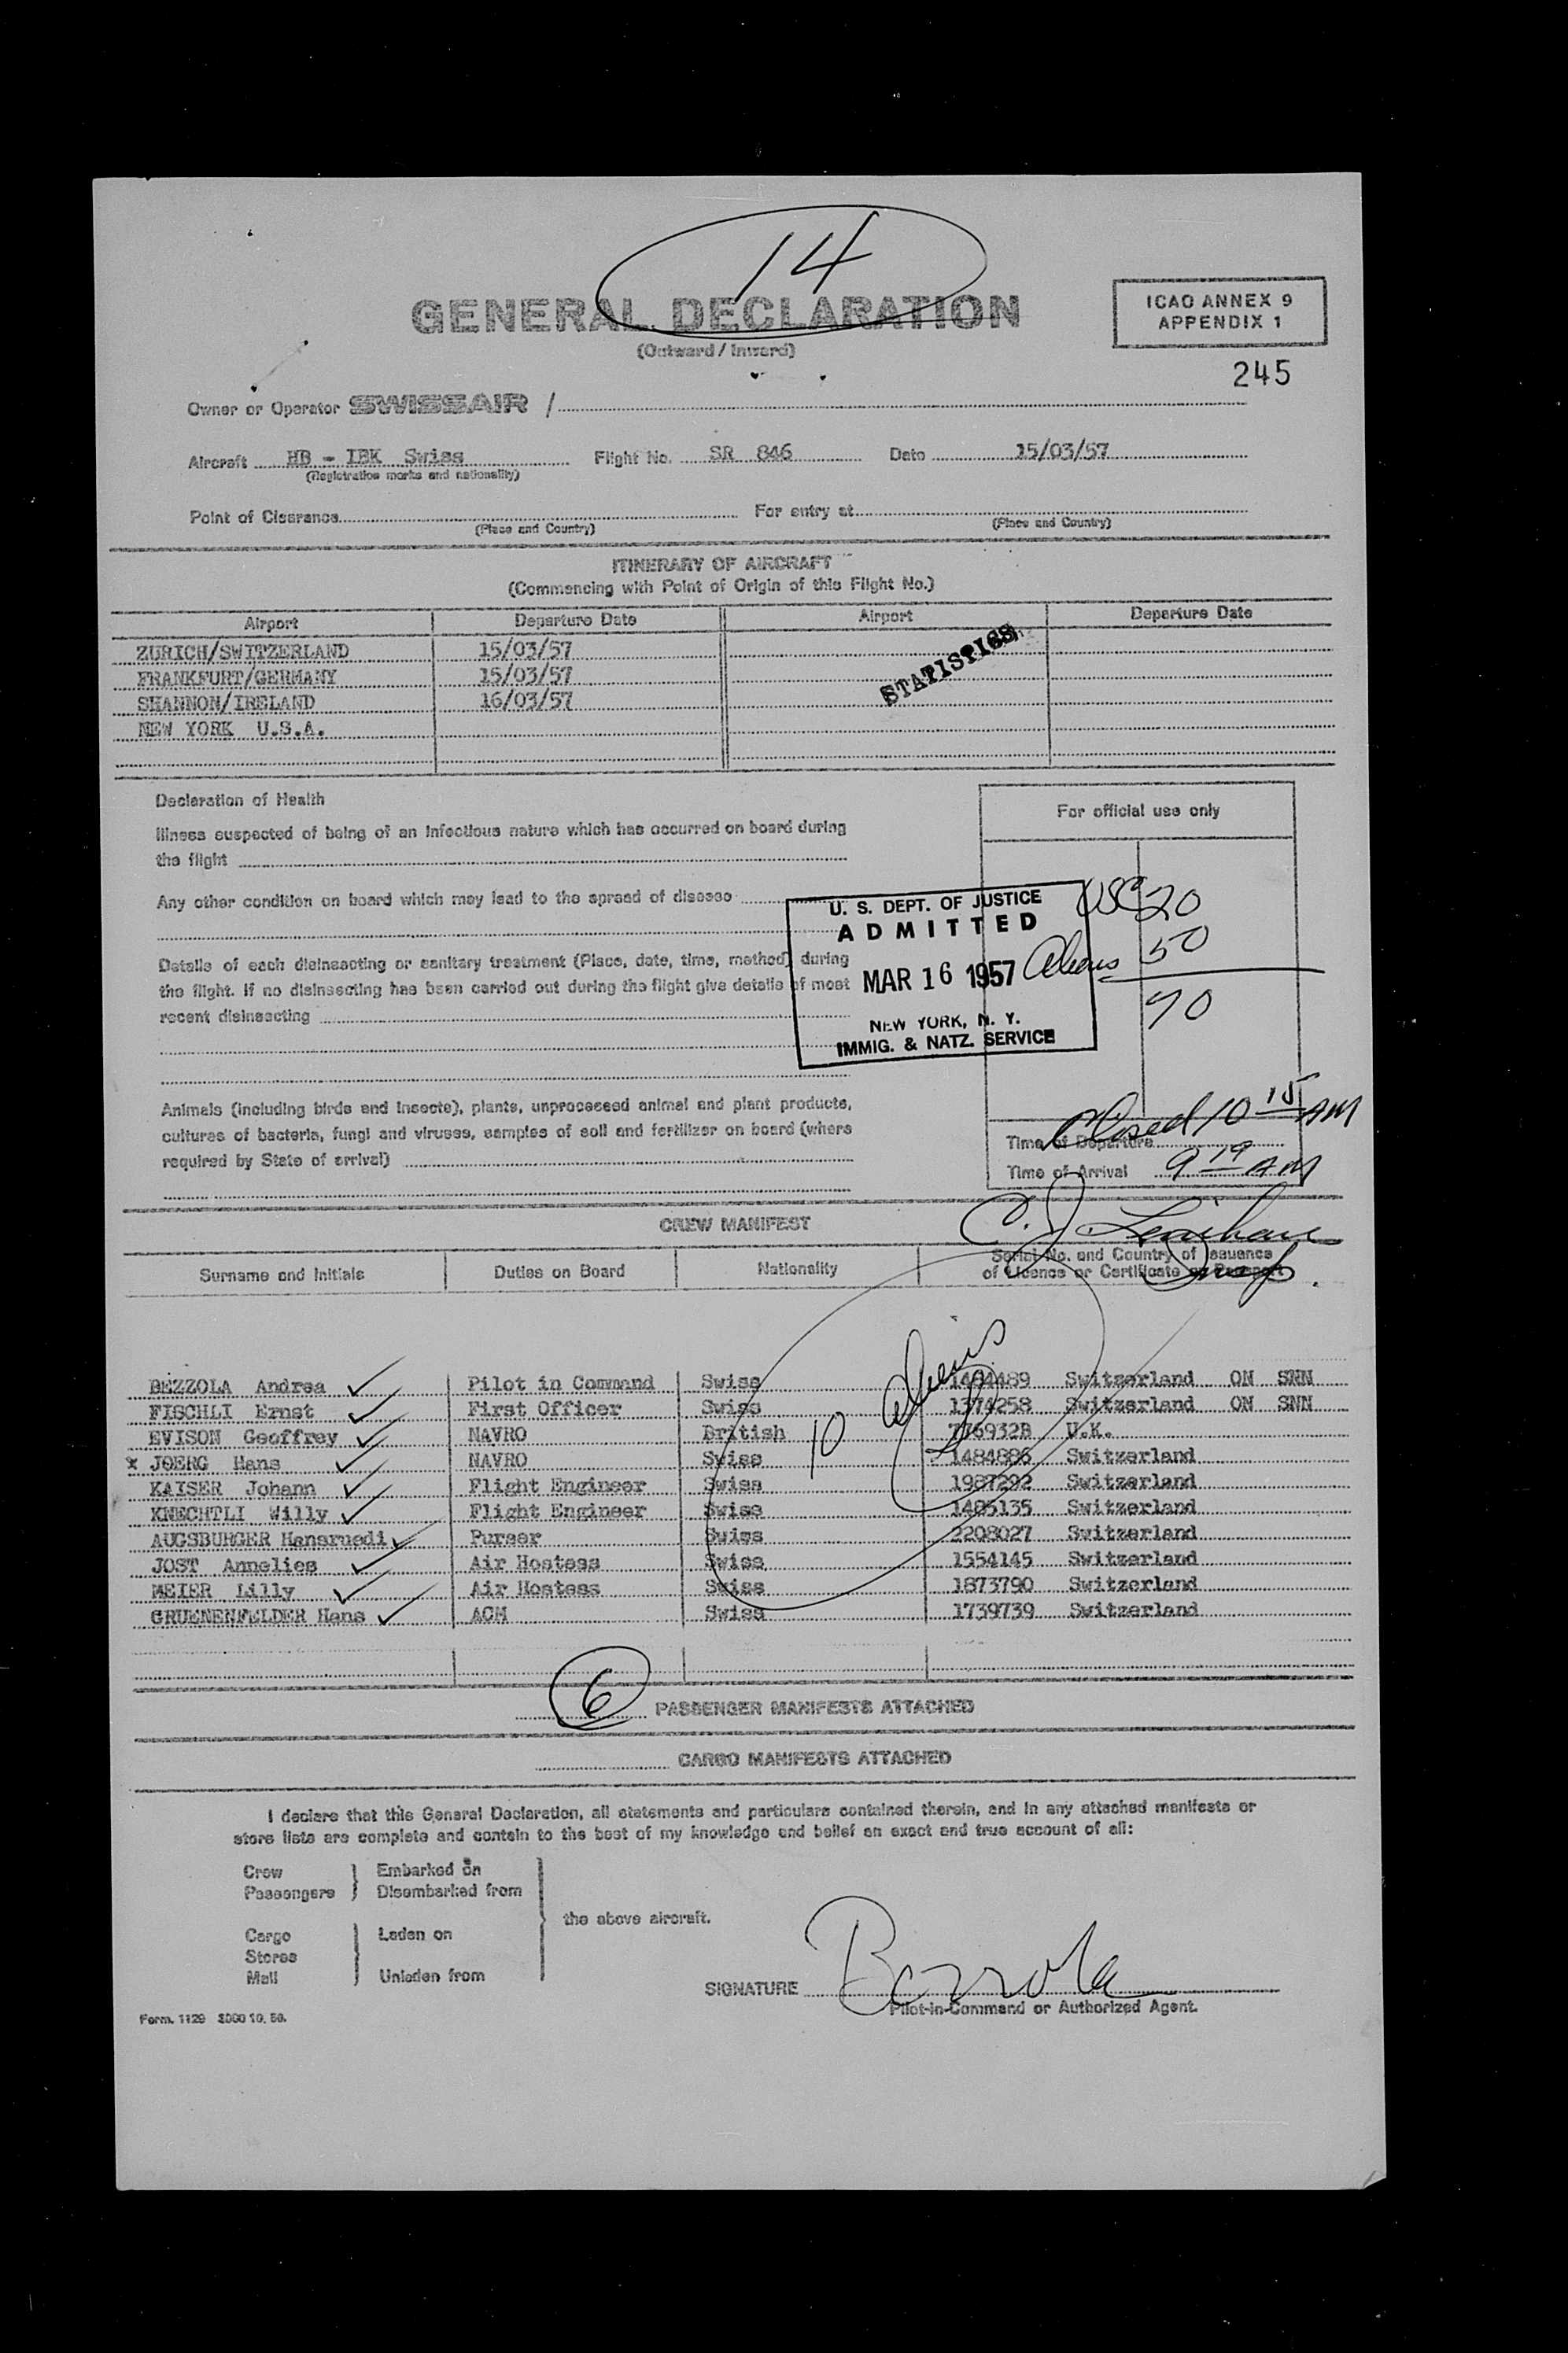 14
GENERAL DECLARATION
(Outward / Inward)
ICAO ANNEX 9
APPENDIX 1
245
Owner or Operator SWISSAIR /
Aircraft HB - IBK Swiss Flight No. SR 846 Date 15/03/57
(Registration marks and nationality)
Point of Clearance For entry at
(Place and Country) (Place and Country)
ITINERARY OF AIRCRAFT
(Commencing with Point of Origin of this Flight No.)
Airport Departure Date Airport Departure Date
ZURICH/SWITZERLAND 15/03/57
FRANKFURT/GERMANY 15/03/57
SHANNON/IRELAND 16/03/57
NEW YORK U.S.A.
STATISTICS
Declaration of Health
Illness suspected of being of an infectious nature which has occurred on board during
the flight
Any other condition on board which may lead to the spread of disease
Details of each disinsecting or sanitary treatment (Place, date, time, method) during
the flight. If no disinsecting has been carried out during the flight give details of most
recent disinsecting
Animals (including birds and insects), plants, unprocessed animal and plant products,
cultures of bacteria, fungi and viruses, samples of soil and fertilizer on board (where
required by State of arrival)
For official use only
U. S. DEPT. OF JUSTICE
ADMITTED
MAR 16 1957
NEW YORK, N. Y.
IMMIG. & NATZ. SERVICE
USC 20
Aliens 50
70
Closed 10 15 AM
Time of Departure
Time of Arrival 9 19 AM
C. J. Lenihan
Insp.
CREW MANIFEST
Surname and Initials Duties on Board Nationality Serial No. and Country of Issuance
of Licence or Certificate or Passport
10 Aliens
BEZZOLA Andrea Pilot in Command Swiss 1484489 Switzerland ON SNN
FISCHLI Ernst First Officer Swiss 1374258 Switzerland ON SNN
EVISON Geoffrey NAVRO British 776932B U.K.
* JOERG Hans NAVRO Swiss 1484886 Switzerland
KAISER Johann Flight Engineer Swiss 1987292 Switzerland
KNECHTLI Willy Flight Engineer Swiss 1485135 Switzerland
AUGSBURGER Hansruedi Purser Swiss 2208027 Switzerland
JOST Annelies Air Hostess Swiss 1554145 Switzerland
MEIER Lilly Air Hostess Swiss 1873790 Switzerland
GRUENENFELDER Hans ACM Swiss 1739739 Switzerland
6 PASSENGER MANIFESTS ATTACHED
CARGO MANIFESTS ATTACHED
I declare that this General Declaration, all statements and particulars contained therein, and in any attached manifests or
store lists are complete and contain to the best of my knowledge and belief an exact and true account of all:
Crew Embarked on
Passengers Disembarked from
the above aircraft.
Cargo Laden on
Stores
Mail Unladen from
SIGNATURE Bezzola
Pilot-in-Command or Authorized Agent.
Form. 1129 3000 10. 56.